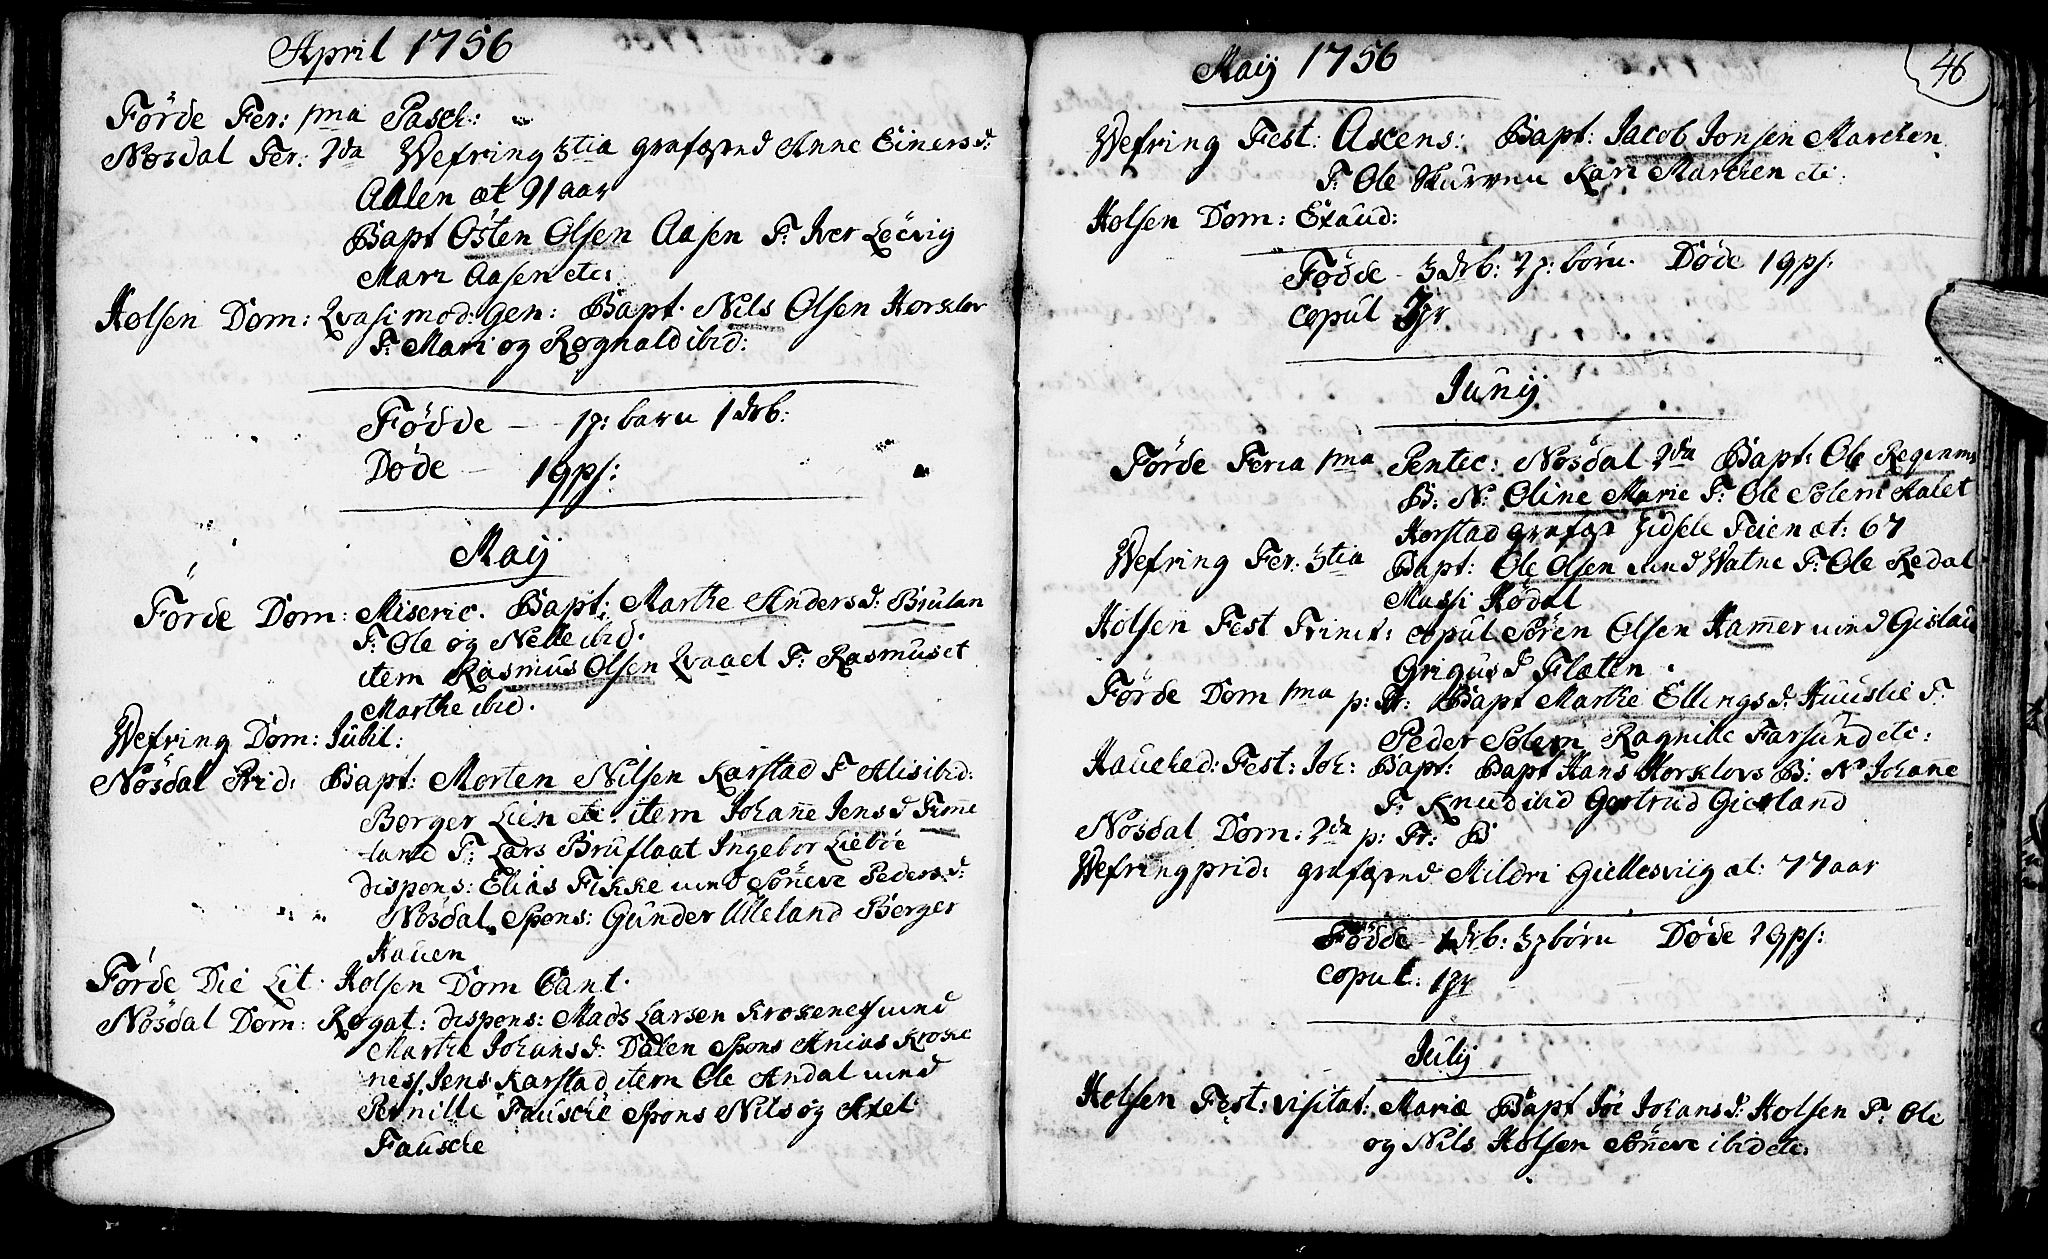 April 1756
Förde Fer: 1ma Pasch:
Nøsdal Fer: 2da Wefring 3tia grafæstnd Anne Einersd:
Aalen æt 91 aar
Bapt Östen Olsen Aasen F: Iver Löevig
Mari Aasen etc:
Holsen Dom: Qvasimod: Gen: Bapt. Nils Olsen Horsklov
F: Mari og Rognald ibid:
Födde — 1 p: barn 1 drb:
Døde — 1 qps:
Maij
Förde Dom: Miseric. Bapt: Marthe Andersd: Brulan
F: Ole og Nelle ibid.
item Rasmus Olsen Qvaael F: Rasmus et
Marthe ibid.
Wefring Dom: Jubil:
Nøsdal Prid: Bapt: Morten Nilsen Karstad F Alis ibid:
Börger Lien etc. item Johanne Jensd Time
land F: Lars Bruflaat Ingebor Liebøe
dispons: Elias Fikke und Sönneve Pedersd:
Nøsdal. Spons: Gunder Ulleland Börger
Hauen
Förde Die Lit: Holsen Dom Cant.
Nösdal Dom: Rogat: dispons: Mads Larsen Krokenes und
Marthe Johansd: Dalen Spons Anias Kroke
nes, Jens Karstad item Ole Andal und
Pernille Fausche Spons Nils og Axel
Fausche
Maij 1756
46
Wefring Fest: Ascens: Bapt: Jacob Jonsen Marchen
F: Ole Skurven Kari Marchen etc:
Holsen Dom: Exaud:
Födde - 3 drb: 2 p: børn. Døde 1 qps:
copul 2 pr
Junij
Förde Feria 1ma Pentec: Nøsdal 2da Bapt: Ole Regenms
B: N: Oline Marie F: Ole Solem Malet
Horstad grafæst Zidsele Feien æt: 67
Wefring Fer: 3tia Bapt: Ole Olsen und Watne F: Ole Redal
Massi Hødal
Holsen Fest Trinit: copul Sören Olsen Hammer und Gislau
Grigusd Flæten.
Förde Dom 1ma p: Tr: Bapt Marthe Ellingsd: Huuslie F
Peder Solem Ragnille Farsund etc:
Hauched: Fest: Joh: Bapt: Bapt Hans Horsklovs B: N Johane
F: Knud ibid Gertrud Gierland
Nösdal Dom: 2da p: Tr: B
Wefring prid: grafæstnd Mildri Giellesviig æt: 77 aar
Födde 1 drb: 3 p børn Døde 2 qps:
copul: 1 pr
Julij
Holsen Fest: visitat: Mariæ Bapt Joe Johansd: Holsen F: Ole
og Nils Holsen Sönneve ibid etc: